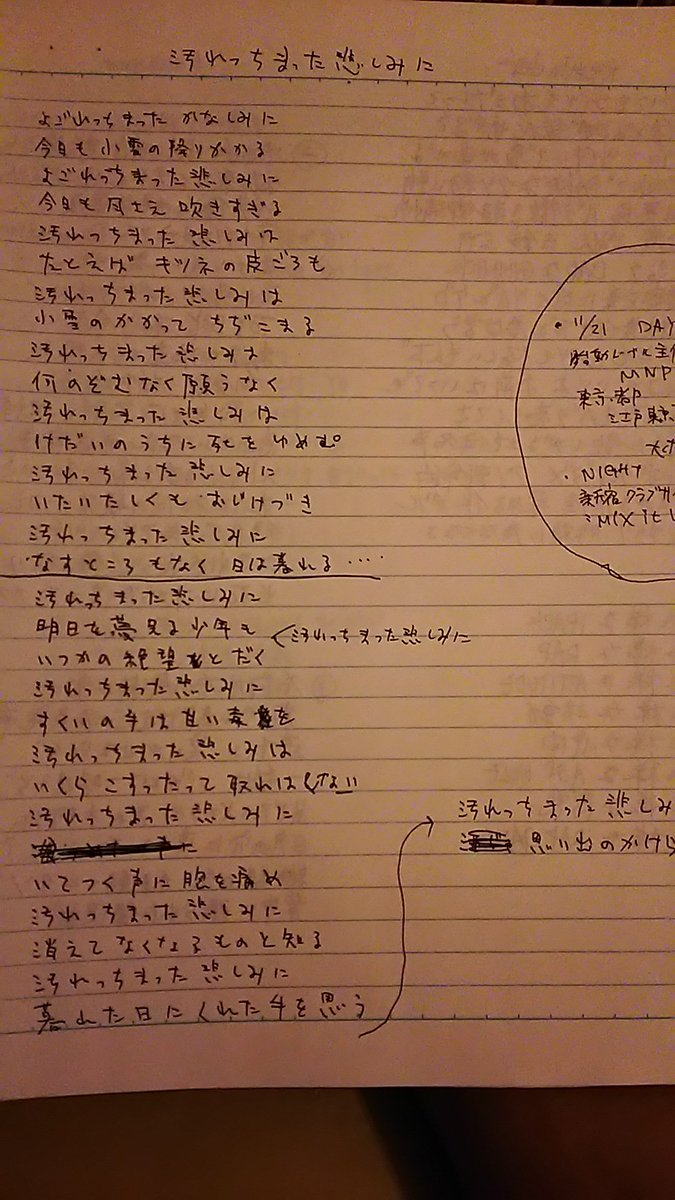 汚れっちまった悲しみに
よごれっちまった かなしみに
今日も 小雪の降りかかる
よごれっちまった 悲しみに
今日も 風さえ 吹きすぎる
汚れっちまった 悲しみは
たとえば キツネの皮ごろも
汚れっちまった 悲しみは
小雪のかかって ちぢこまる
汚れっちまった 悲しみは
何のぞむなく 願うなく
汚れっちまった 悲しみは
けだいのうちに 死を ゆめむ
汚れっちまった 悲しみに
いたいたしくも おじけづき
汚れっちまった 悲しみに
なすところもなく 日は暮れる‥‥
汚れっちまった 悲しみに
明日を夢見る少年も
←汚れっちまった悲しみに
いつかの絶望をとだく
汚れっちまった 悲しみに
すくいの手は甘い
汚れっちまった 悲しみは
いくら こすったって 取れはしない
汚れっちまった 悲しみに
いてつく声に 胸を痛め
汚れっちまった 悲しみに
消えてなくなるものと知る
汚れっちまった 悲しみに
暮れた日に くれた 手を思う
汚れっちまった 悲しみ
思い出のかけら
・11/21 DAY
胎動レーベル主
MNP
東京・都
江戸東京
・NIGHT
新宿クラブ
MIX